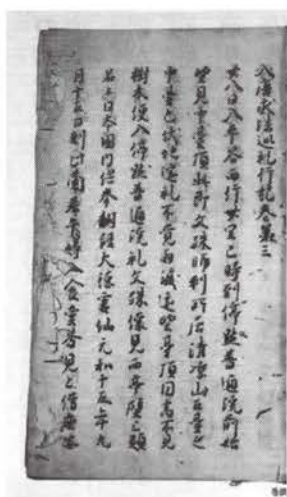 入唐求法巡礼行記卷第三
廿八日入平谷西行卅里巳時到停點普通院前始
望見中臺頂此即文殊師利所居清凉山五臺之
中臺也伏地遙礼不覺雨淚遙望臺頂圓高不見
樹木便入停點普通院礼文殊像見西亭壁上題
名云日本國内供奉翻經大德霊仙元和十五年九
月十五日到此蘭若 入食堂